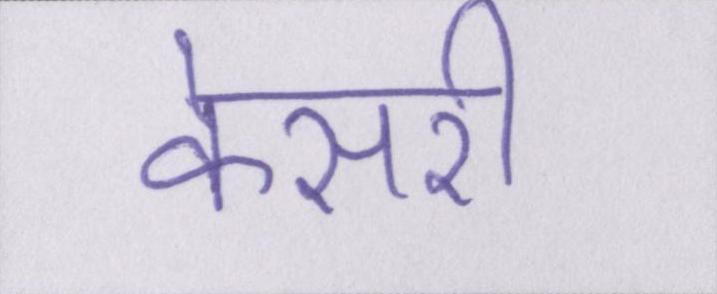 केसरी